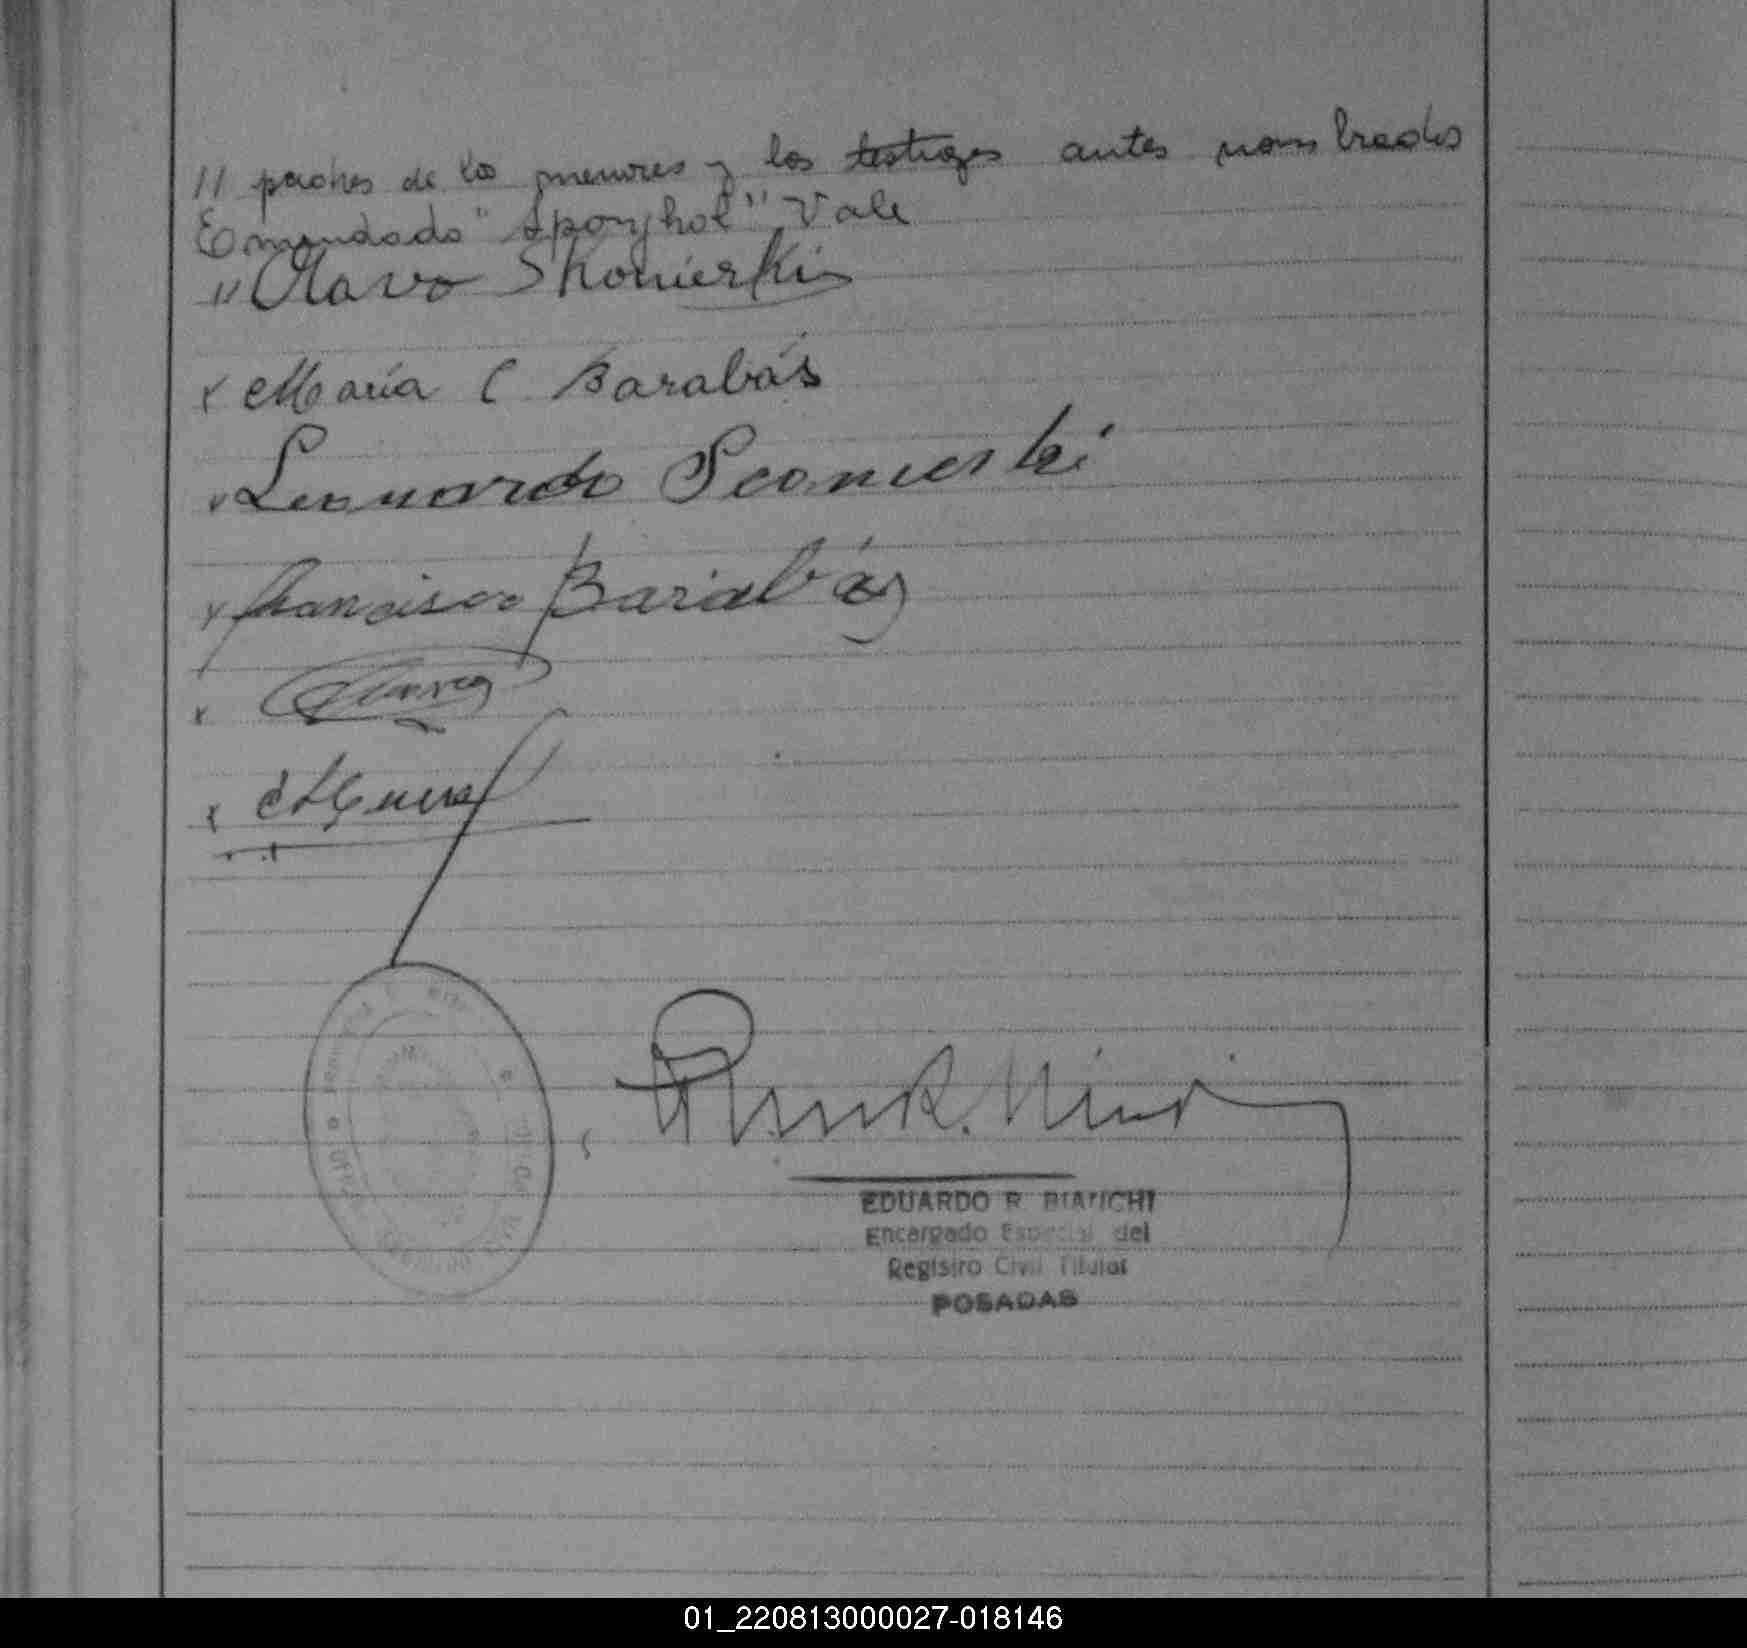 // padres de los menores y los testigos antes nombrados
Emendado "Aponyhol" Vale
" Olavo Skonierki
x María C Barabás
x Leonardo Sconierski
x Francisco Barabás
x
x
EDUARDO R. BIANCHI
Encargado Especial del
Registro Civil Titular
POSADAS
01_220813000027-018146